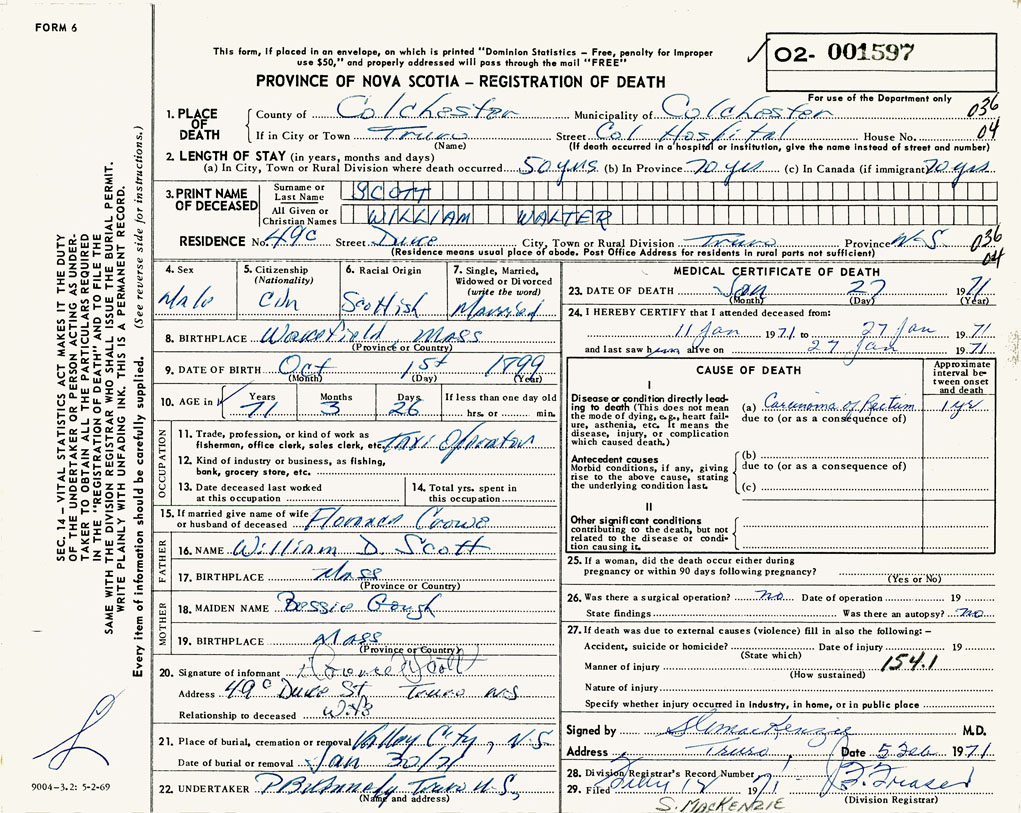 FORM 6
This form, if placed in an envelope, on which is printed "Dominion Statistics – Free, penalty for improper
use $50," and properly addressed will pass through the mail "FREE"
02- 001597
PROVINCE OF NOVA SCOTIA – REGISTRATION OF DEATH
For use of the Department only
036
04
1. PLACE OF DEATH
County of Colchester Municipality of Colchester
If in City or Town Truro Street Col Hospital House No.
(Name) (If death occurred in a hospital or institution, give the name instead of street and number)
2. LENGTH OF STAY (in years, months and days)
(a) In City, Town or Rural Division where death occurred 50 yrs (b) In Province 70 yrs (c) In Canada (if immigrant) 70 yrs
3. PRINT NAME OF DECEASED
Surname or Last Name SCOTT
All Given or Christian Names WILLIAM WALTER
RESIDENCE No. 49c Street Duke City, Town or Rural Division Truro Province N-S
(Residence means usual place of abode. Post Office Address for residents in rural parts not sufficient)
036
04
4. Sex
Male
5. Citizenship
(Nationality)
Cdn
6. Racial Origin
Scottish
7. Single, Married,
Widowed or Divorced
(write the word)
Married
8. BIRTHPLACE Wakefield, Mass
(Province or Country)
9. DATE OF BIRTH Oct 1st 1899
(Month) (Day) (Year)
10. AGE in
Years 71
Months 3
Days 26
If less than one day old
hrs. or min.
OCCUPATION
11. Trade, profession, or kind of work as
fisherman, office clerk, sales clerk, etc. Taxi Operator
12. Kind of industry or business, as fishing,
bank, grocery store, etc.
13. Date deceased last worked
at this occupation
14. Total yrs. spent in
this occupation
15. If married give name of wife
or husband of deceased Florence Crowe
FATHER
16. NAME William D. Scott
17. BIRTHPLACE Mass
(Province or Country)
MOTHER
18. MAIDEN NAME Bessie Gough
19. BIRTHPLACE Mass
(Province or Country)
20. Signature of informant Florence Scott
Address 49c Duke St Truro NS
Relationship to deceased Wife
21. Place of burial, cremation or removal Valley City, N.S.
Date of burial or removal Jan 30/71
22. UNDERTAKER Truro N.S,
(Name and address)
MEDICAL CERTIFICATE OF DEATH
23. DATE OF DEATH Jan 27 1971
(Month) (Day) (Year)
24. I HEREBY CERTIFY that I attended deceased from:
11 Jan 1971 to 27 Jan 1971
and last saw him alive on 27 Jan 1971
CAUSE OF DEATH
Approximate
interval be-
tween onset
and death
I
Disease or condition directly lead-
ing to death (This does not mean
the mode of dying, e.g., heart fail-
ure, asthenia, etc. It means the
disease, injury, or complication
which caused death.)
(a) Carcinoma of Rectum 1 yr
due to (or as a consequence of)
Antecedent causes
Morbid conditions, if any, giving
rise to the above cause, stating
the underlying condition last.
(b)
due to (or as a consequence of)
(c)
II
Other significant conditions
contributing to the death, but not
related to the disease or condi-
tion causing it.
25. If a woman, did the death occur either during
pregnancy or within 90 days following pregnancy?
(Yes or No)
26. Was there a surgical operation? no Date of operation 19
State findings Was there an autopsy? no
27. If death was due to external causes (violence) fill in also the following: –
Accident, suicide or homicide? Date of injury 19
(State which)
Manner of injury 154.1
(How sustained)
Nature of injury
Specify whether injury occurred in industry, in home, or in public place
Signed by S MacKenzie M.D.
Address Truro Date 5 Feb 1971
28. Division Registrar's Record Number
29. Filed 1971 Fraser
(Division Registrar)
S. MacKENZIE
SEC. 14 – VITAL STATISTICS ACT MAKES IT THE DUTY
OF THE UNDERTAKER OR PERSON ACTING AS UNDER-
TAKER TO OBTAIN ALL THE PARTICULARS REQUIRED
IN THE "REGISTRATION OF DEATH" AND TO FILE THE
SAME WITH THE DIVISION REGISTRAR WHO SHALL ISSUE THE BURIAL PERMIT.
WRITE PLAINLY WITH UNFADING INK. THIS IS A PERMANENT RECORD.
Every item of information should be carefully supplied. (See reverse side for instructions.)
9004-3.2: 5-2-69